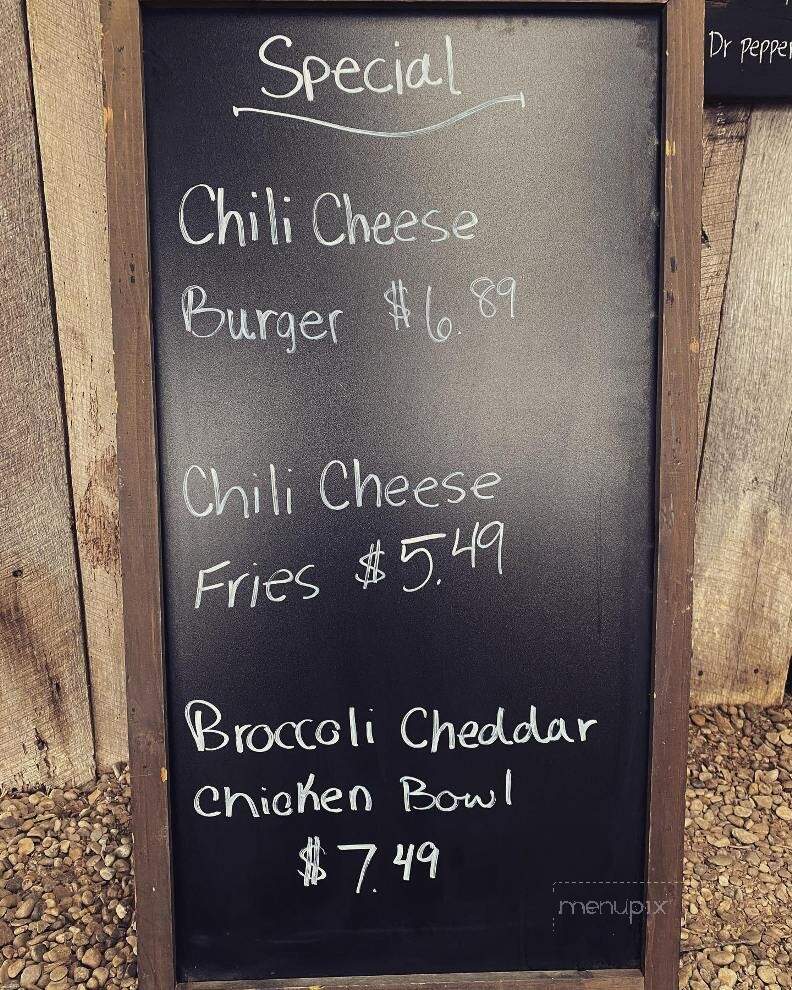 Special
Chili Cheese
Burger $6.89
Chili Cheese
Fries $5.49
Broccoli Cheddar
Chicken Bowl
$7.49
Dr pepper
menupix